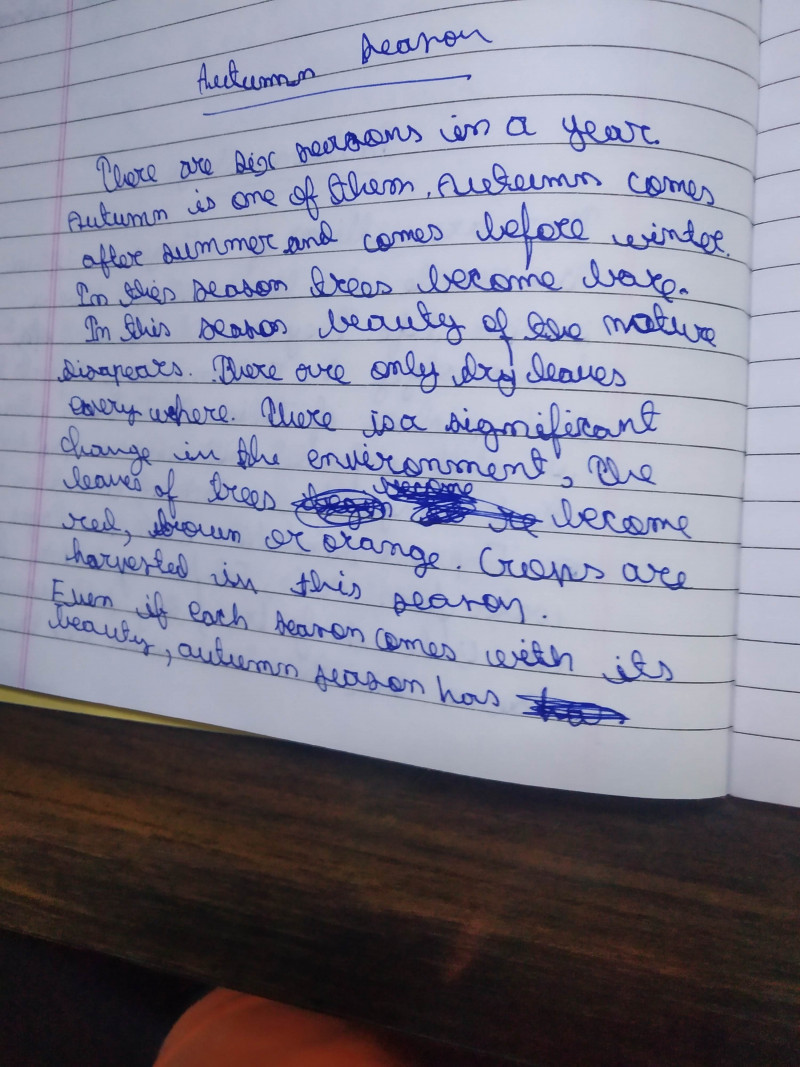 Autumn season
There are six seasons in a year.
Autumn is one of them. Autumn comes
after summer and comes before winter.
In this season trees become bare.
In this season beauty of the nature
disapears. There are only dry leaves
everywhere. There is a significant
change in the environment, The
leaves of trees become become
red, brown or orange. Crops are
harvested in this season.
Even if each season comes with its
beauty, autumn season has